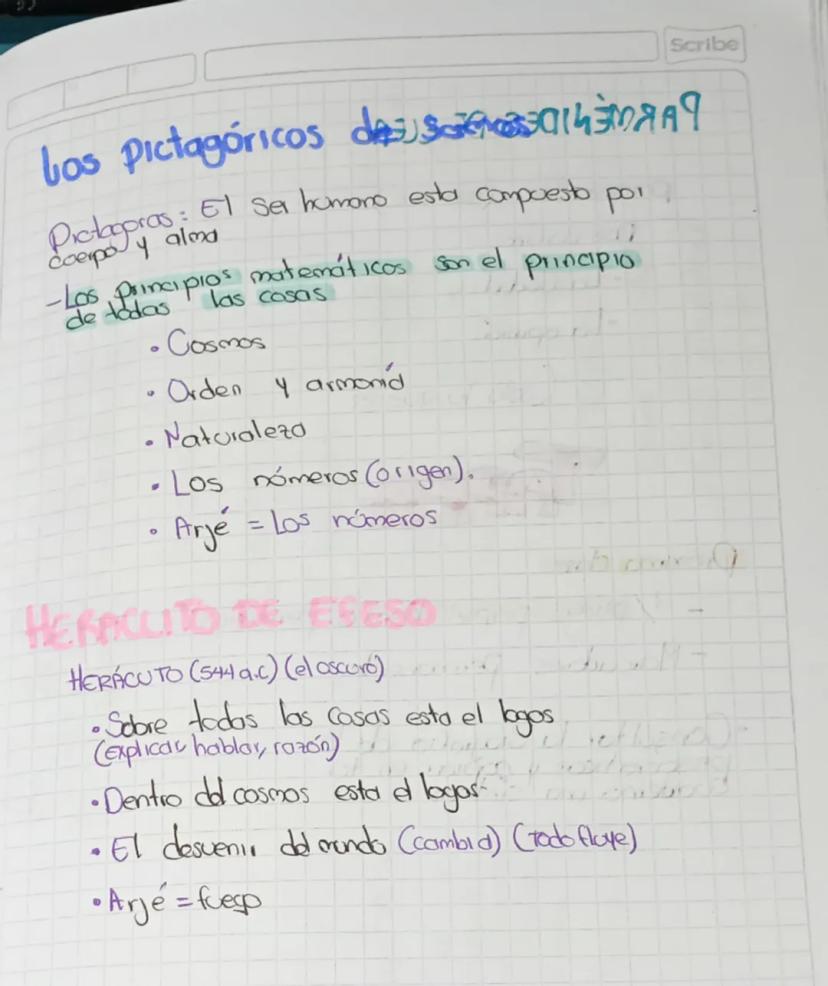 Scribe
Los Pictagóricos
Pictagoras: El Ser humano esta compuesto por
cuerpo y alma
-Los principios matemáticos son el principio
de todas las cosas
• Cosmos
• Orden y armonía
• Naturaleza
• Los números (origen).
• Arjé = Los números
HERACLITO DE EFESO
HERÁCLITO (544 a.c) (el oscuro)
• Sobre todas las cosas esta el logos
(explicar, hablar, razón)
• Dentro del cosmos esta el logos
• El desvenir del mundo (cambia) (todo fluye)
• Arjé = fuego